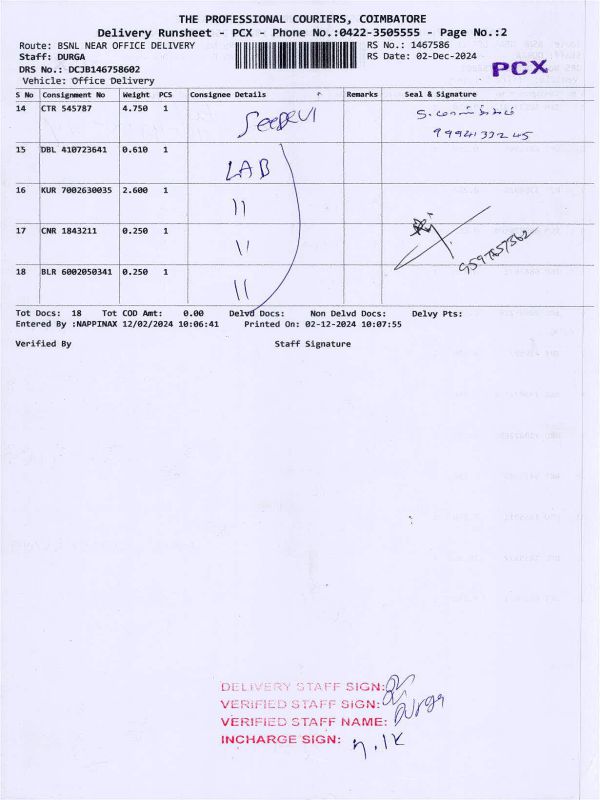 THE PROFESSIONAL COURIERS, COIMBATORE
Delivery Runsheet - PCX - Phone No.:0422-3505555 - Page No.:2
Route: BSNL NEAR OFFICE DELIVERY RS No.: 1467586
Staff: DURGA RS Date: 02-Dec-2024
DRS No.: DCJB146758602 PCX
Vehicle: Office Delivery
S No Consignment No Weight PCS Consignee Details Remarks Seal & Signature
14 CTR 545787 4.750 1
15 DBL 410723641 0.610 1 LAB
16 KUR 7002630035 2.600 1 11
17 CNR 1843211 0.250 1 11
18 BLR 6002050341 0.250 1 11
Tot Docs: 18 Tot COD Amt: 0.00 Delvd Docs: Non Delvd Docs: Delvy Pts:
Entered By :NAPPINAX 12/02/2024 10:06:41 Printed On: 02-12-2024 10:07:55
Verified By Staff Signature
DELIVERY STAFF SIGN:
VERIFIED STAFF SIGN:
VERIFIED STAFF NAME: Durga
INCHARGE SIGN: